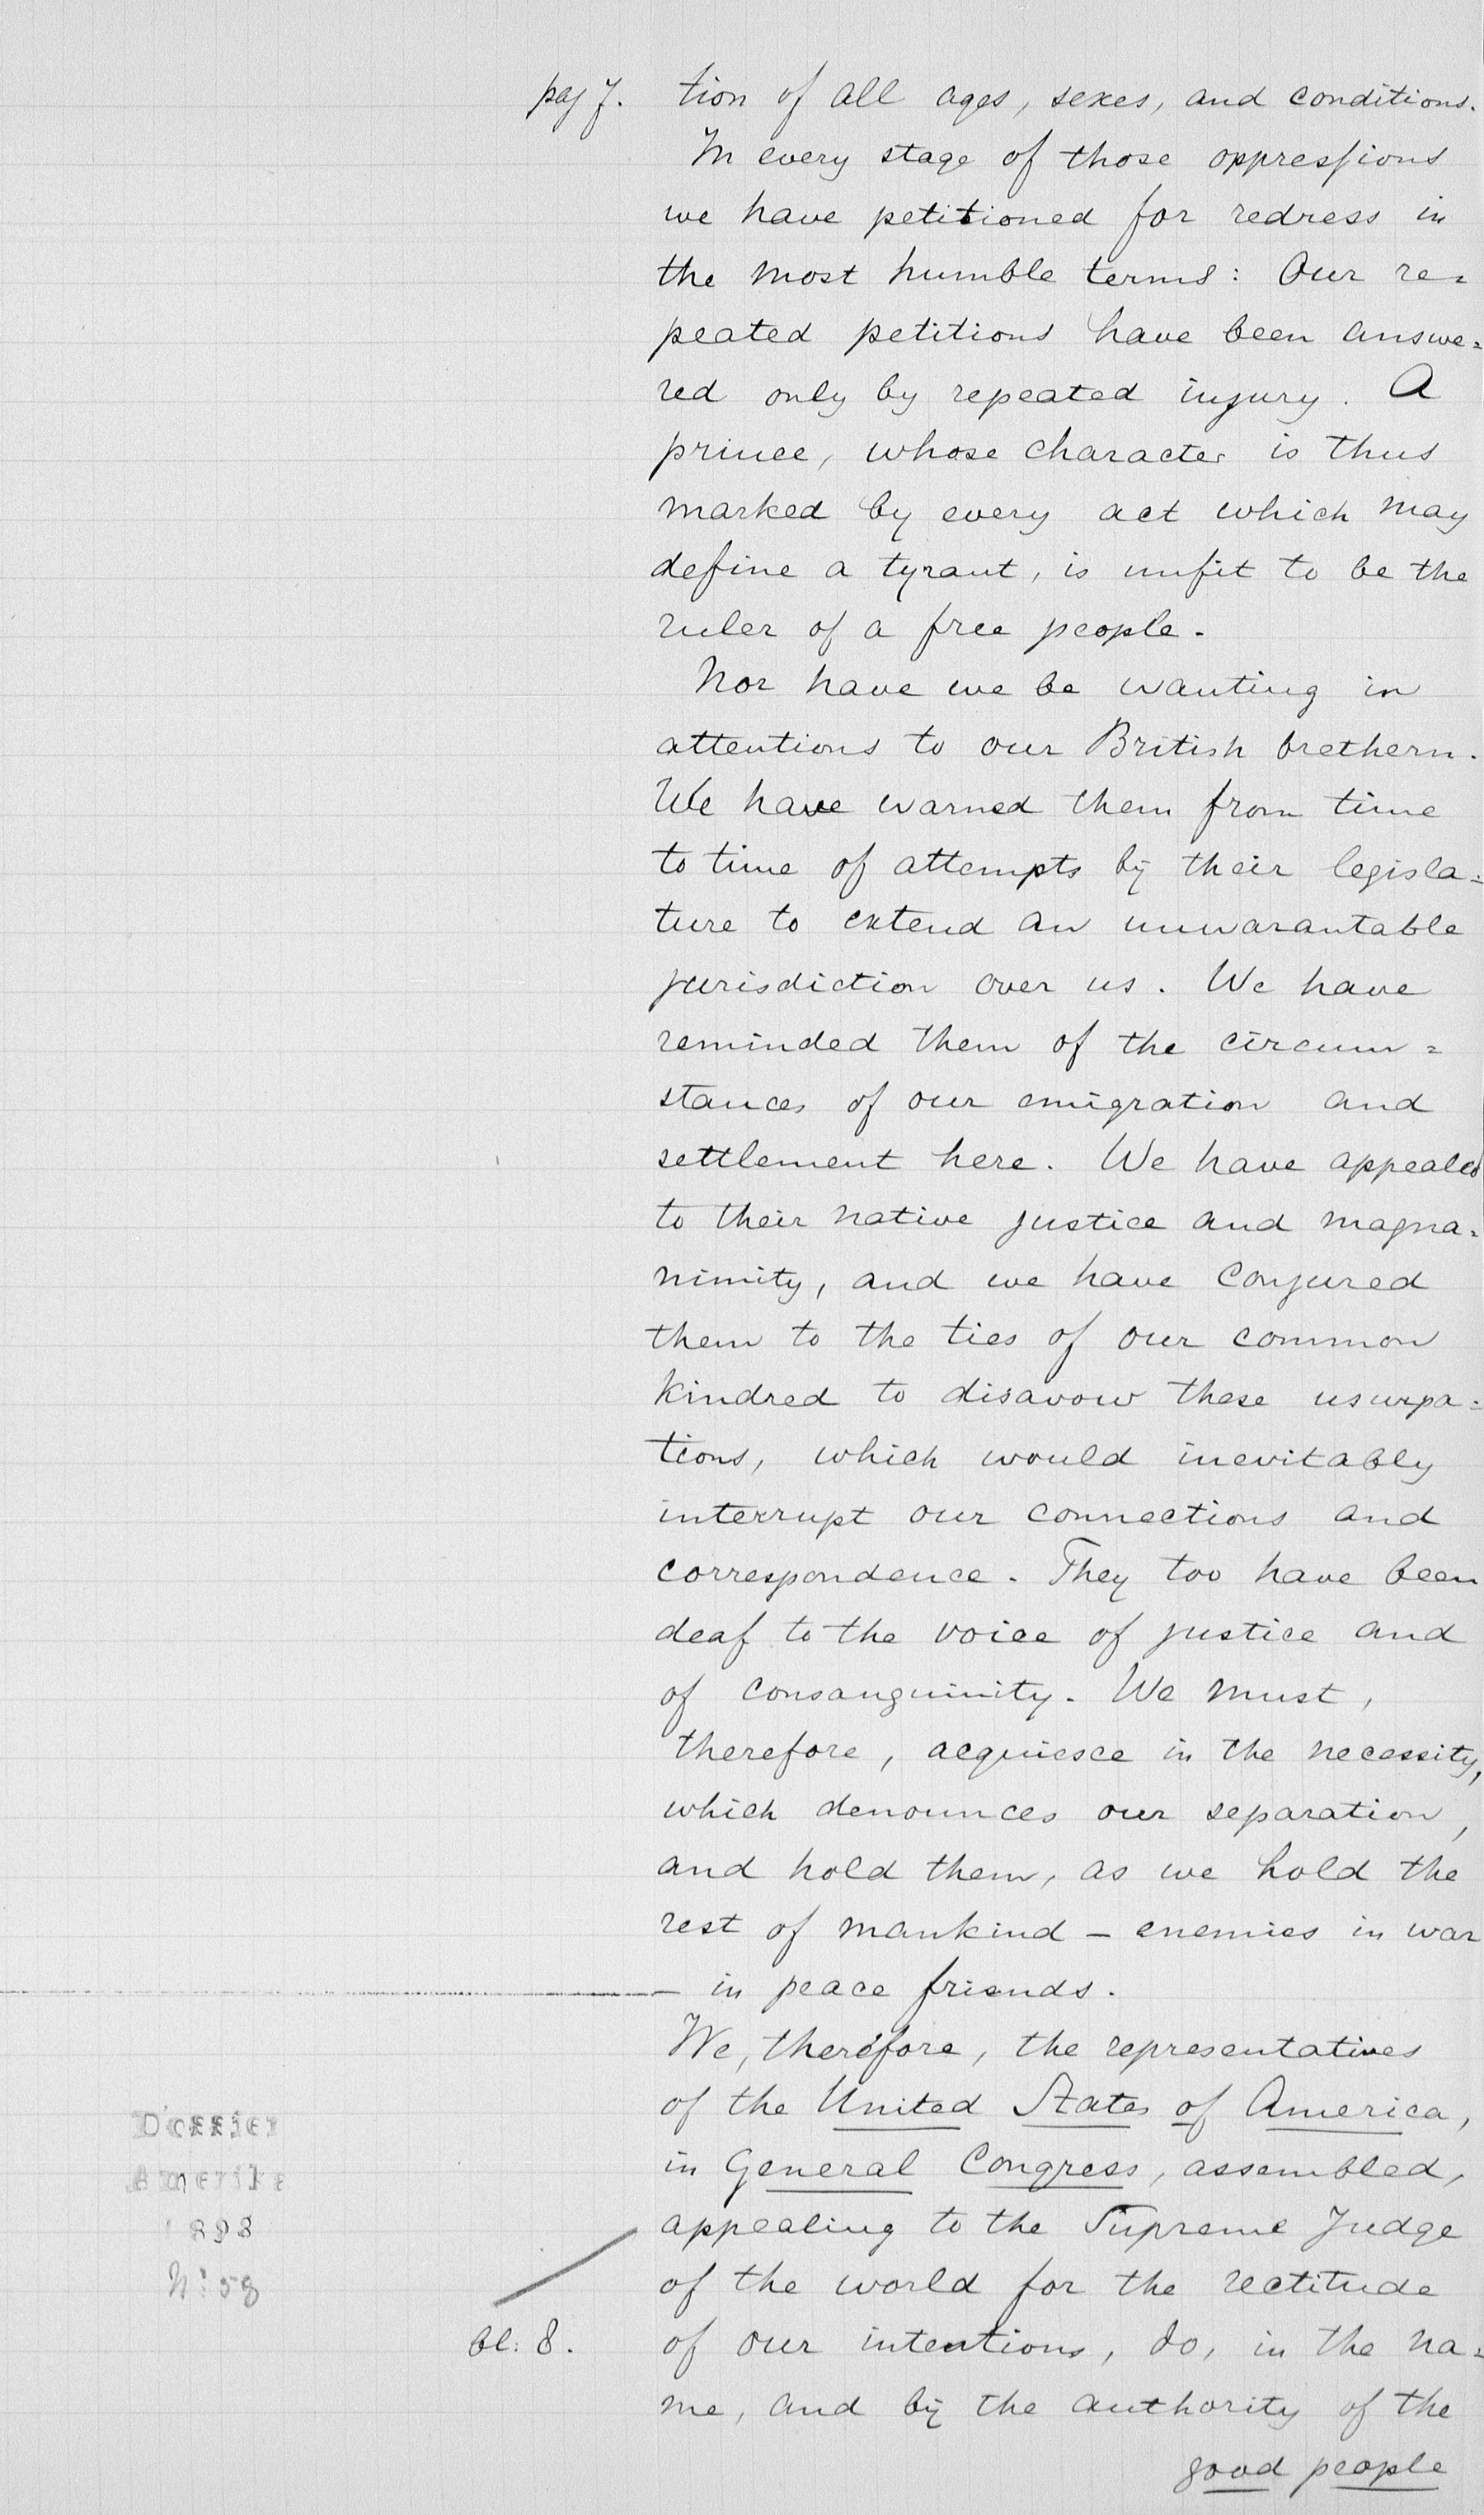 pag 7. tion of all ages, sexes, and conditions.
In every stage of those oppressions
we have petitioned for redress in
the most humble terms: Our re=
peated petitions have been answe=
red only by repeated injury. A
prince, whose character is thus
marked by every act which may
define a tyrant, is unfit to be the
ruler of a free people.
Nor have we be wanting in
attentions to our British brethern.
We have warned them from time
to time of attempts by their legisla=
ture to extend an unwarantable
jurisdiction over us. We have
reminded them of the circum=
stances of our emigration and
settlement here. We have appealed
to their native justice and magna=
nimity, and we have conjured
them to the ties of our common
kindred to disavow these usurpa=
tions, which would inevitably
interrupt our connections and
correspondence. They too have been
deaf to the voice of justice and
of consanguinity. We must,
therefore, acquiesce in the necessity,
which denounces our separation,
and hold them, as we hold the
rest of mankind — enemies in war
— in peace friends.
We, therefore, the representatives
of the United States of America,
in General Congress, assembled,
appealing to the Supreme Judge
of the world for the rectitude
bl: 8. of our intentions, do, in the na=
me, and by the authority of the
good people
Dossier
Amerika
1898
N: 58